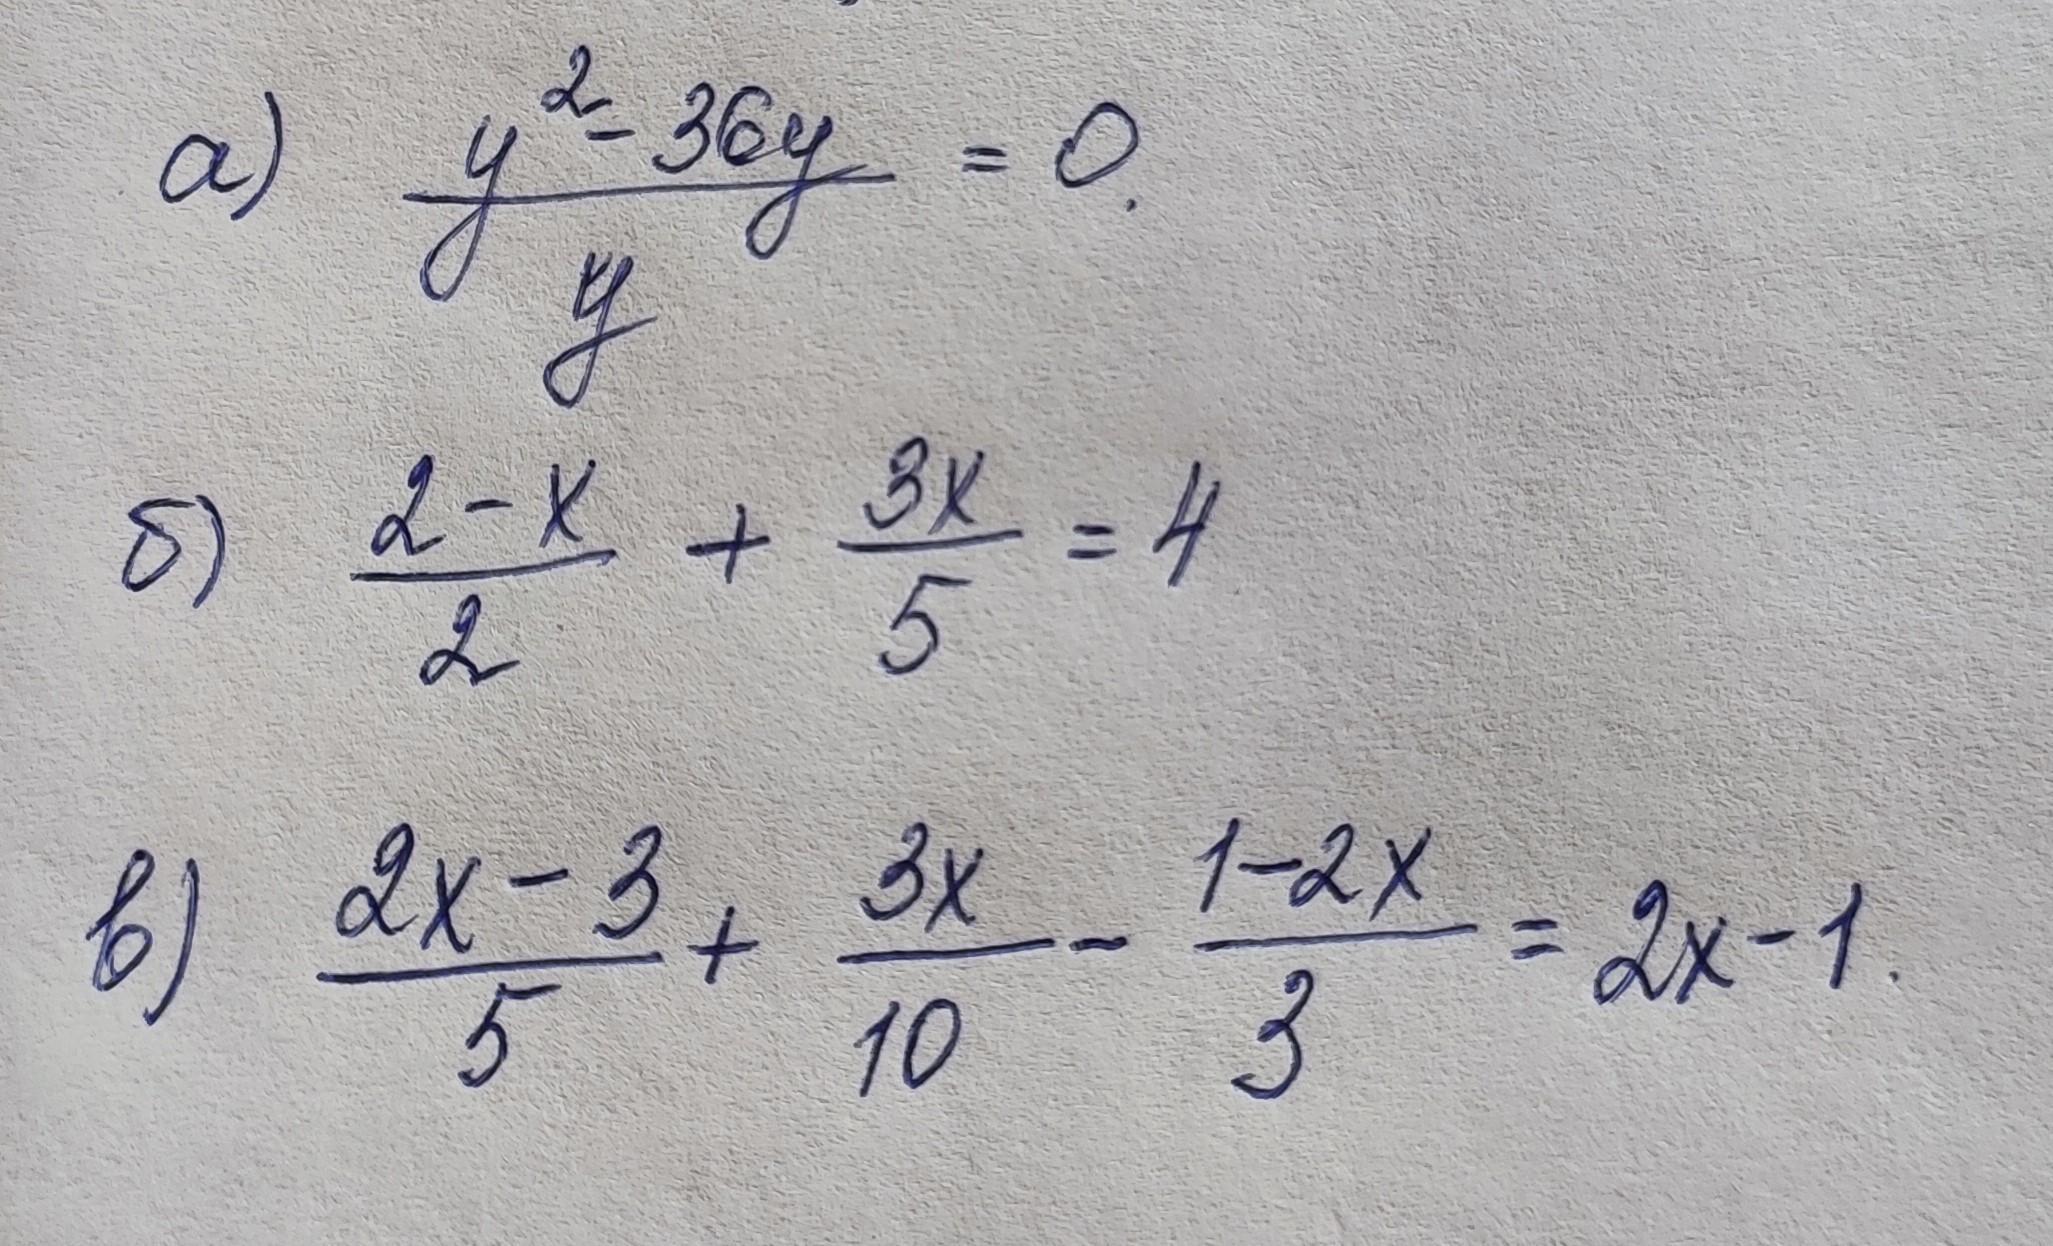 а) (y² - 36y)/y = 0.
б) (2 - x)/2 + 3x/5 = 4
в) (2x - 3)/5 + 3x/10 - (1 - 2x)/3 = 2x - 1.